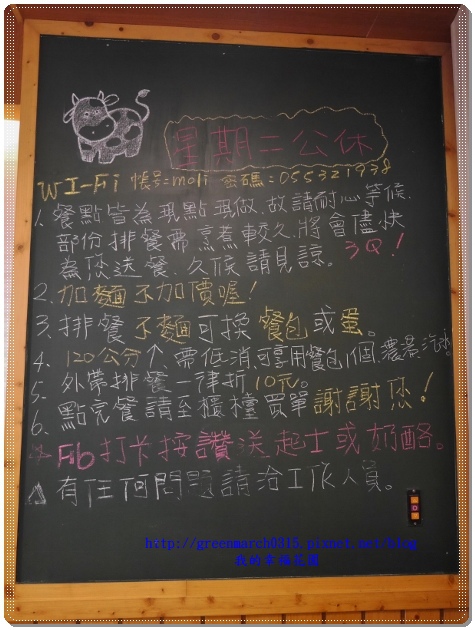 星期二公休
WI-Fi 帳号=moli 密碼=055321938
1. 餐點皆為現點現做.故請耐心等候.
部份排餐需烹煮較久.將會儘快
為您送餐.久候請見諒。3Q!
2. 加麵不加價喔!
3. 排餐不麵可換 餐包或蛋。
4. 120公分↑需低消.可享用餐包1個.濃湯.汽水.
5. 外帶排餐一律折10元。
6. 點完餐請至櫃檯買單謝謝您!
Fb打卡按讚送起士或奶酪。
△有任何問題請洽工作人員。
http://greenmarch0315.pixnet.net/blog
我的幸福花園